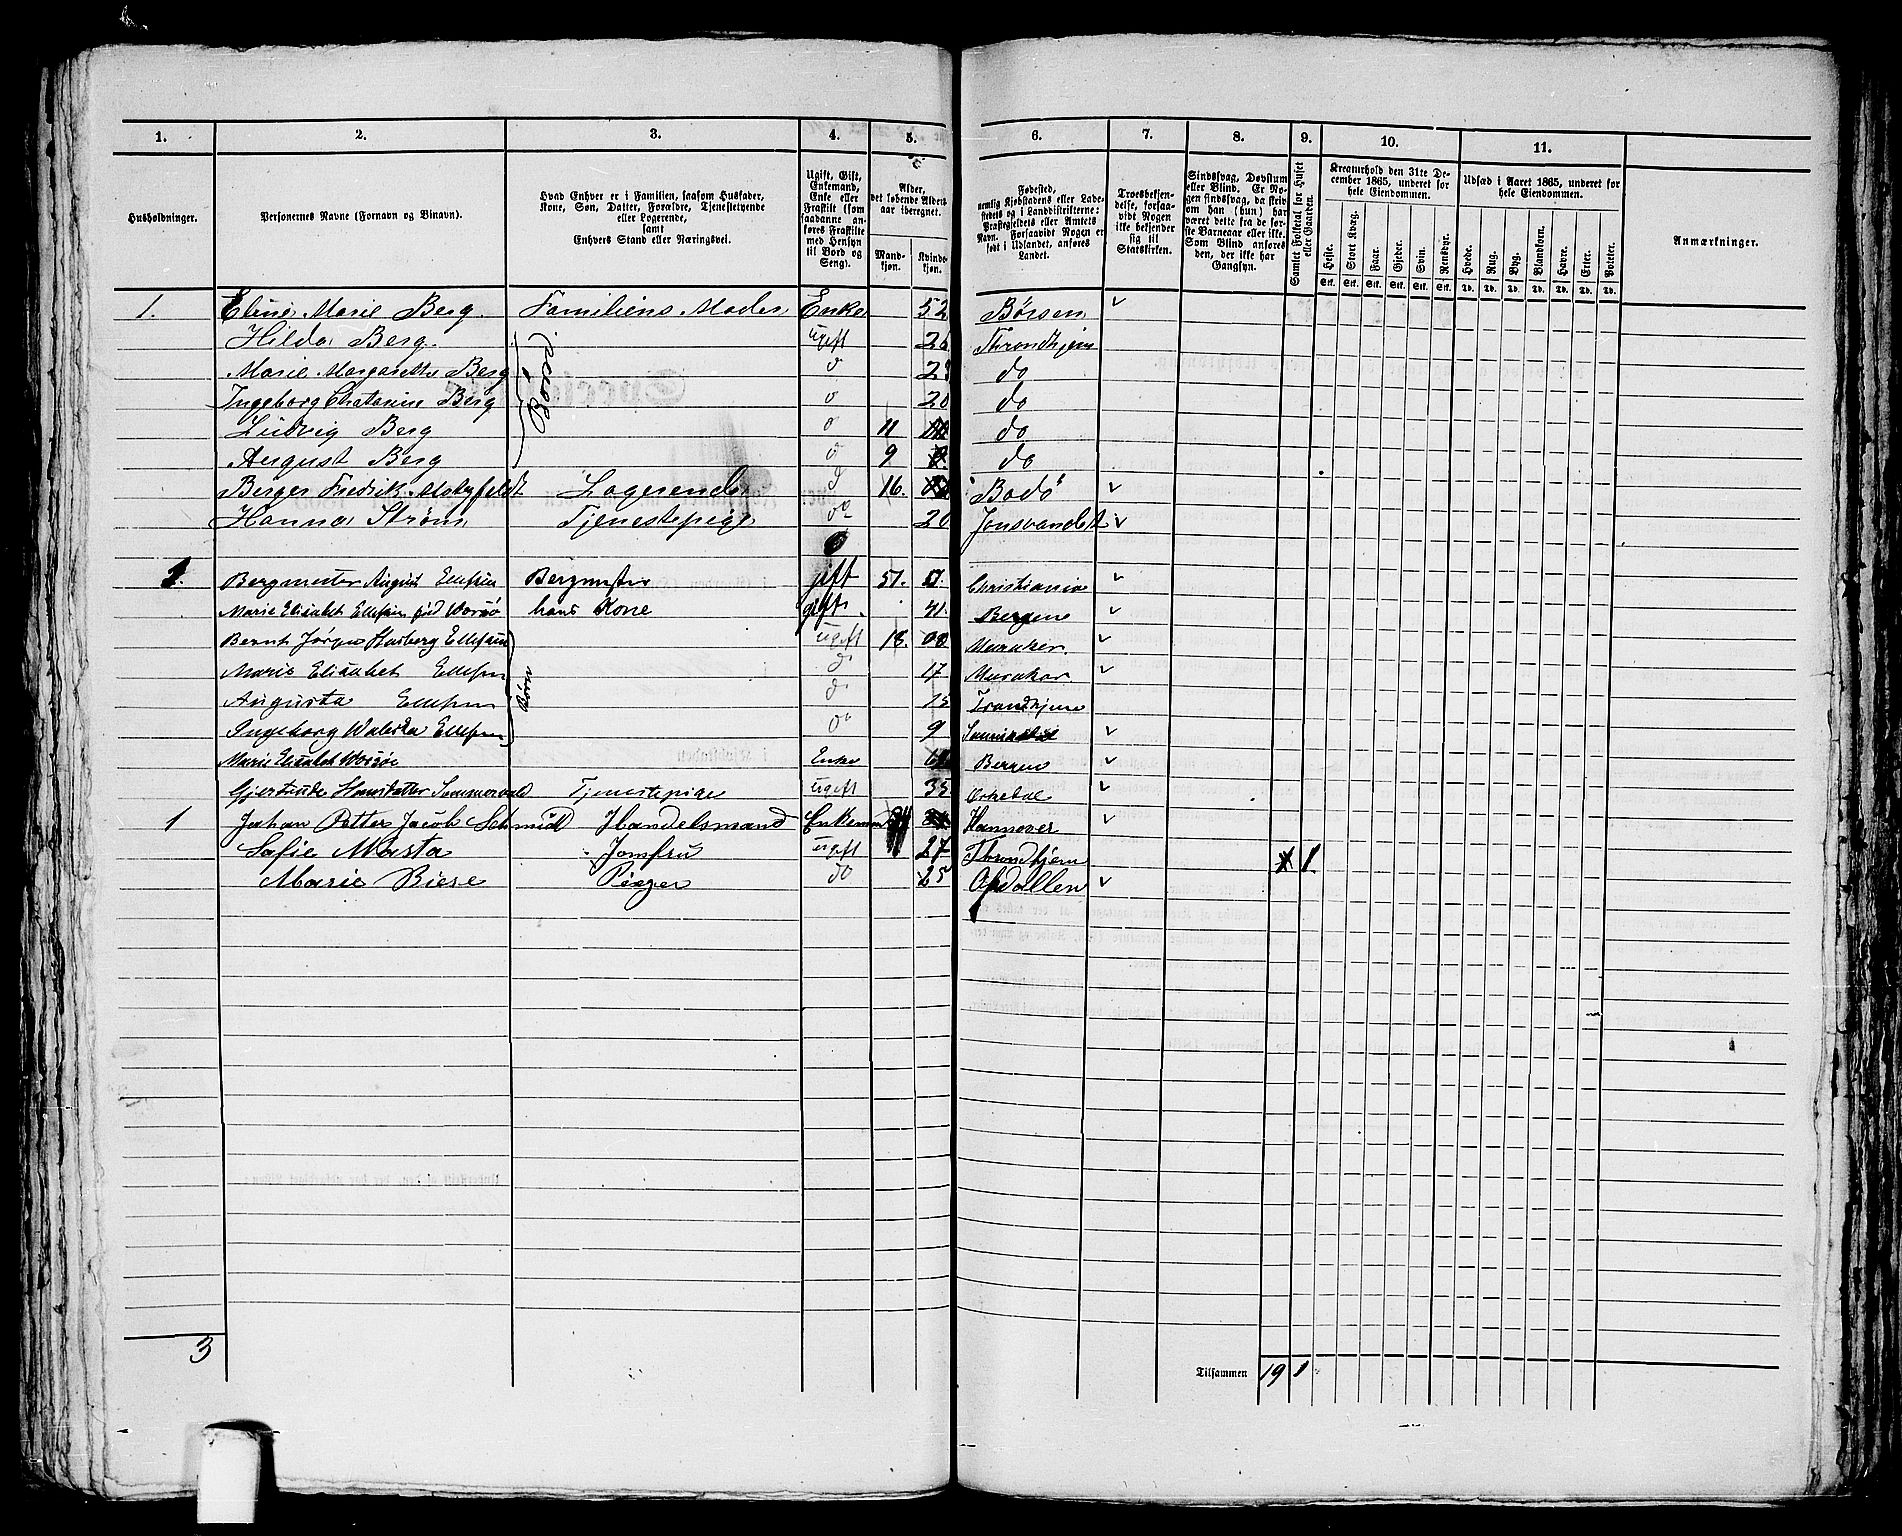 1. 2. 3. 4. 5. 6. 7. 8. 9. 10. 11.
Husholdninger.
Personernes Navne (Fornavn og Binavn).
Hvad Enhver er i Familien, saasom Husfader, Kone, Søn, Datter, Forældre, Tjenestetyende eller Logerende, samt Enhvers Stand eller Næringsvei.
Ugift, Gift, Enkemand, Enke eller Fraskilt (som saadanne anføres Fraskilte med Hensyn til Bord og Seng).
Alder, det løbende Aldersaar iberegnet.
Mandkjøn. Kvindekjøn.
Fødested, nemlig Kjøbstadens eller Ladestedets og i Landdistrikterne: Præstegjeldets eller Amtets Navn. Forsaavidt Nogen er født i Udlandet, anføres Landet.
Troesbekjendelse, forsaavidt Nogen ikke bekjender sig til Statskirken.
Sindssvag, Døvstum eller Blind. Er Nogen sindssvag, da skriv om han (hun) har været dette fra de første Barneaar eller ikke. Som Blind anføres den, der ikke har Gangsyn.
Samlet Folketal for Huset eller Gaarden.
Kreaturhold den 31te December 1865, underet for hele Eiendommen.
Heste. Stort Kvæg. Faar. Gjeder. Svin. Rensdyr.
Stk. Stk. Stk. Stk. Stk. Stk.
Udsæd i Aaret 1865, underet for hele Eiendommen.
Hvede. Rug. Byg. Blandkorn. Havre. Erter. Poteter.
Td. Td. Td. Td. Td. Td. Td.
Anmærkninger.
1. Eline Marie Berg Familiens Moder Enke 52 Børsen
Hilda Berg. ugift 26 Throndhjem
Marie Margarethe Berg do 2 do
Ingeborg Chatarine Berg o 20 do
Børn
Ludvig Berg o 11 do
August Berg o 9 do
Berger Fredrik Logerende d 16. Bodö
Hanna Strøm Tjenestepige do 20 Jonsvandet
1. Bergmester August Ellefsen Bergmester gift 51. Christiania
Marie Elisabet Ellefsen fød Worsøe hans Kone gift. 41. Bergen
Bernt Jørgen Ellefsen ugift 18. Meraker.
Marie Elisabet Ellefsen d 17 Meraker.
Børn
Augusta Ellefsen d 15 Trondhjem
Ingeborg Ellefsen do 9
Marie Elisabet Worsöe Enke Bergen
Gjertrude Hansdatter Tjenestepige ugift 35 Orkedal
1 Johan Petter Jacob Schmidt Handelsmand Enkemand Hannover
Sofie Masta Jomfru ugift 27 Throndhjem 1.
Marie Biese Piger do 25 Opdallen
3
Tilsammen 19 1